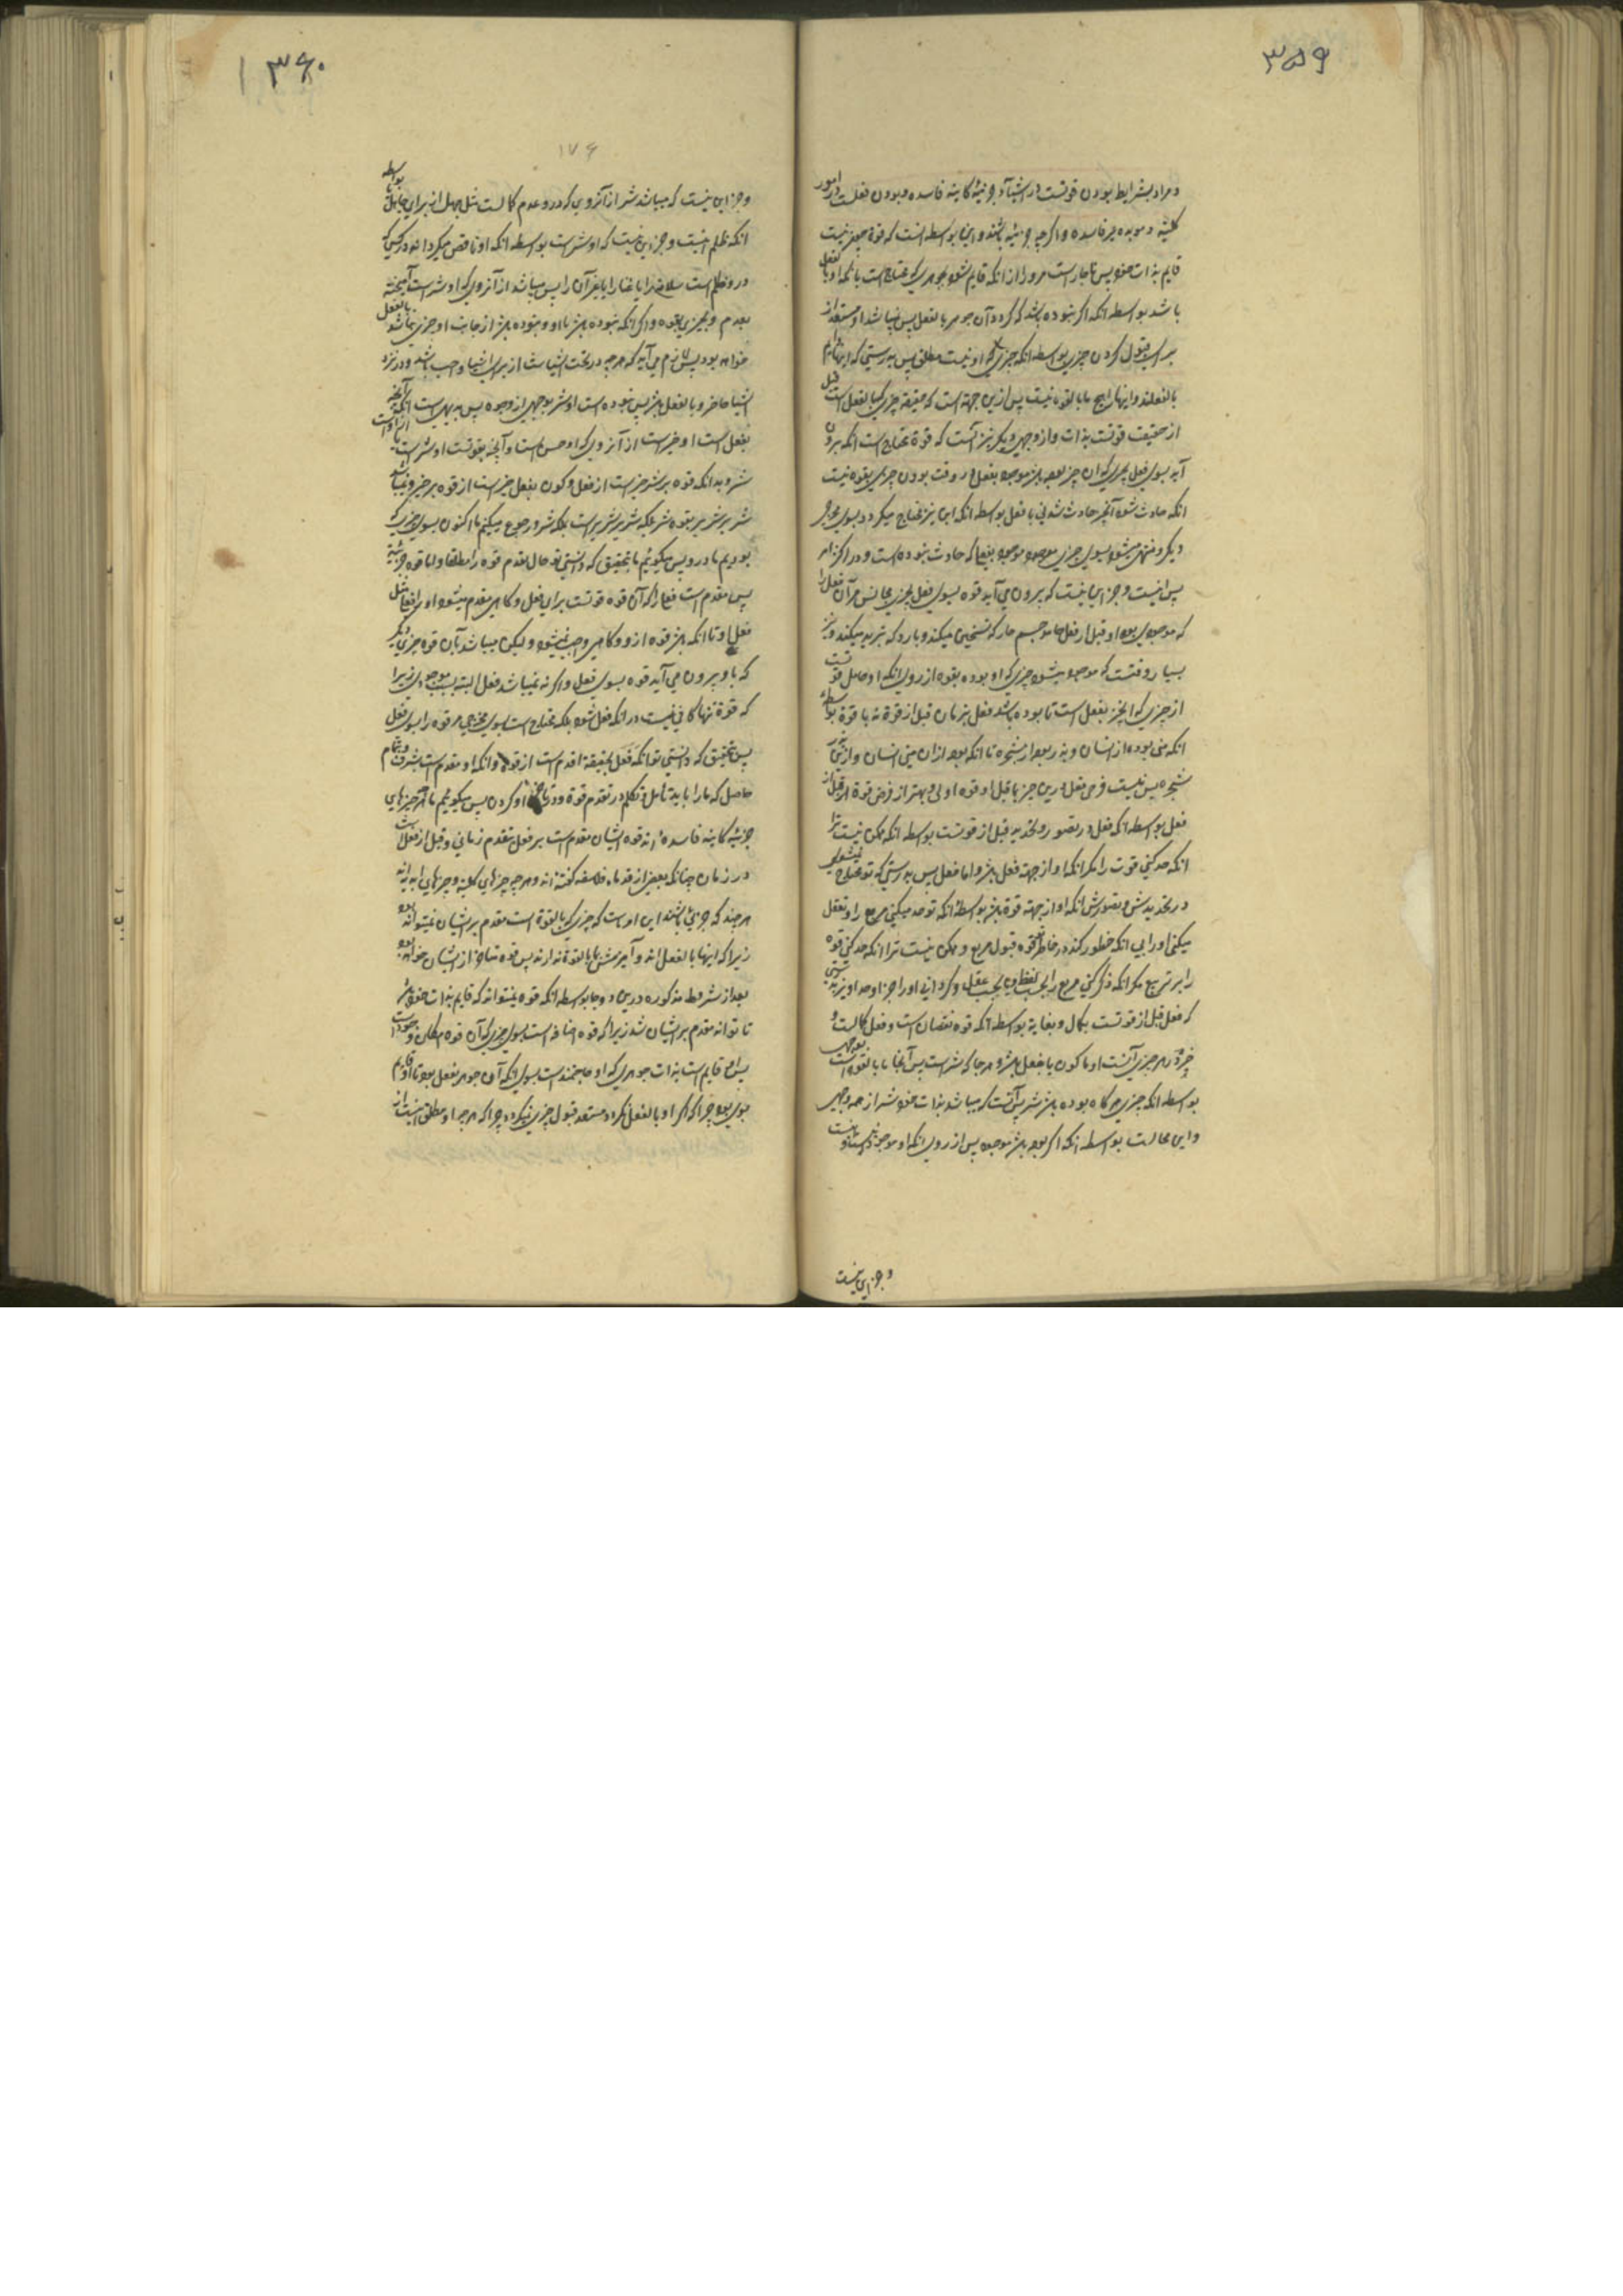 ۳۵۹
و مراد بشرایط بودن قوتست در اشیاء جزئیه کاینه فاسده و بودن فعلست در امور
کلیه و موبده غیر فاسده و اگرچه جزئیه باشند و این بواسطه انست که قوة بیعنی نیست
قایم بذات خود پس ناچار است مرورا از انکه قایم شود بجوهری که محتاج است بانکه او بالفعل
باشد بواسطه انکه اگر نبوده باشد که کردد آن جوهر بالفعل پس نمیباشد او مستعد از
برای قبول کردن چیزی بواسطه انکه چیزی که او نیست مطلق پس بدرستی که اینها
بالفعلند و اینها را هیچ ما بالقوه نیست پس ازین جهة است که حقیقة چیزی که بالفعل است قبل
از حقیقت قوتست بذات و از وجهی دیگر نیز آنست که قوة محتاج است انکه برون
آید بسوی فعل بچیزی که ان چیز بوده باشد موجود بفعل در وقت بودن چیزی بقوه نیست
انکه حادث شود آنچیز حادث شدنی با فعل بواسطه انکه این نیز محتاج میکردد بسوی مخرجی
دیگر و منتهی میشود بسوی چیزی موجود بفعل که حادث نبوده است و در اکثر امر
پس اینست و جز این نیست که برون می آید قوه بسوی فعل بچیزی مجانس مر آن فعل را
که موجودی بود او قبل از فعل همچو جسم حار که تسخین میکند و بارد که تبرید میکند و نیز
بسیار وقتست که موجود میشود چیزی که او بوده بقوه از روی انکه او حامل قوتست
از چیزی که انچیز بفعل است تا بوده باشد فعل بزمان قبل از قوة نه با قوة بواسطه
انکه منی بوده از انسان و بذر بود از شجره تا انکه بود از ان منی انسان و از بذر
شجره پس نیست فرض فعل درین چیز ها قبل او قوه اولی و بهتر از فرض قوة قبل از
فعل بواسطه انکه فعل در تصور و تحدید قبل از قوتست بواسطه انکه ممکن نیست ترا
انکه حد کنی قوت را مکر انکه او از جهة فعل باشد و اما فعل پس بدرستی که تو محتاج نیشوی
در تحدیدش و تصورش انکه او از جهة قوة باشد بواسطه انکه تو حد میکنی مربع را و تعقل
میکنی او را بی انکه خطور کند در خاطر تو قوه قبول مربع و ممکن نیست ترا انکه حد کنی قوه
را بر تربیع مکر انکه ذکر کنی مربع را بحسب لفظ و یا بحسب عقل و کردانی او را جز او حد او و نیز بدرستی
که فعل قبل از قوتست بکمال و بغایة بواسطه انکه قوه نقصان است و فعل کمالست و
خیر در هر چیزی آنست او با کون بالفعل باشد و هر جا که شر است پس آنجا ما بالقوه است بوجهی
بواسطه انکه چیزی هر کاه بوده باشد شر پس آنست که میباشد بذات خود شر از همه وجهی
و این محالست بواسطه انکه اگر بود باشد موجود پس از روی انکه او موجود است او نیست
و جز این نیست
۳۶۰
۱۷۶
و جز این نیست که میباشد شر از آنروی که درو عدم کمالست مثل جهل از برای جاهل یا بواسطه
انکه ظلم اینست و جز این نیست که او شر است بواسطه انکه او ناقص میکرداند در کسی که
درو ظلم است سلاح را یا غنا را یا غیر آن را پس میباشد از آنروی که او شر است آمیخته
بعدم و بچیزی بقوه و اگر انکه نبوده باشد با او و نبوده باشد از جانب او چیزی بالفعل
خواهد بود پس لازم می آید که هر چه در تحت اشیاست از برای اشیا واجب باشد و در نزد
اشیا حاضر و بالفعل باشد پس نبوده است او شر بوجهی از وجوه پس بدیهی است انکه آنچه
بفعل است او خیر است از آنروی که او حسن است و آنچه بقوتست او شر است یا ازو است
شر و بدانکه قوه بر شر خیر است از فعل و کون بفعل خیر است از قوه بر خیر و نمیباشد
شریر شریر بقوه شر بلکه شریر شریر است بملکه شر و رجوع میکنیم ما اکنون بسوی چیزی که
بودیم ما درو پس میکوئیم ما بتحقیق که دانستی تو حال تقدم قوه را مطلقا و اما قوه جزئیه
پس مقدم است فعل را که آن قوه قوتست برای فعل و کاهی مقدم میشود او را فعل مثل
فعل او تا انکه باشد قوه ازو و کاهی واجب نمیشود و لیکن میباشد بآن قوه چیزی دیگر
که با او بیرون می آید قوه بسوی فعل و اگر نه نمیباشد فعل البته بسبب موجودی زیرا
که قوة تنها کافی نیست در انکه فعل شود بلکه محتاج است بسوی مخرجی مر قوه را بسوی فعل
پس بتحقیق که دانستی تو انکه فعل بحقیقة اقدم است از قوه و انکه او مقدم است بشرف و بتمام
حاصل که ما را باید تأمل و تکلم در تقدم قوة و در تاخر او کردن پس میکوئیم ما که چیزهای
جزئیه کاینه فاسده اند قوه ایشان مقدم است بر فعل بتقدم زمانی و قبل از فعل است
در زمان چنانکه بعضی از قدماء فلاسفه کفته اند و هر چه چیزهای کلیه و چیزهای ابدیه اند
هر چند که جزئی باشند این او است که چیزی که بالقوة است مقدم بر ایشان نمیتواند بود
زیرا که اینها بالفعل اند و آمیزش با ما بالقوة ندارند پس قوه متاخر از ایشان خواهد بود
بعد از شروط مذکوره درین دو جا بواسطه انکه قوه نمیتواند که قایم بذات خود باشد
تا تواند مقدم بر ایشان شد زیرا که قوه اضافه است بسوی چیزی که آن قوه امکان وجود او است
پس او قایم است بذات جوهری که او حاجتمند است بسوی انکه آن جوهر بفعل بود تا او قایم
بوی بود چرا که اگر او بالفعل نکردد مستعد قبول چیزی نکردد چرا که هر چه او مطلق نیست از